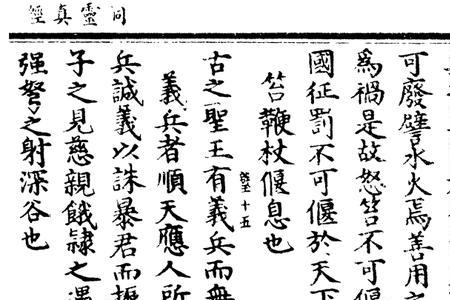 同靈真經
可廢譬水火焉善用之
為禍是故怒笞不可偃
國征罰不可偃於天下
笞鞭杖偃息也
古之聖王有義兵而無
義兵者順天應人所
兵誠義以誅暴君而振
子之見慈親餓隸之遇
强弩之射深谷也